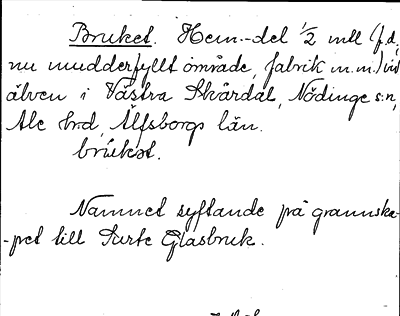 Bruket. Hem.-del 1/2 mtl (f.d.,
nu mudderfyllt område, fabrik m.m.) vid
älven i Västra Skårdal, Nödinge s:n,
Ale hrd, Älfsborgs län.
brukət.
Namnet syftande på grannska-
-pet till Surte Glasbruk.